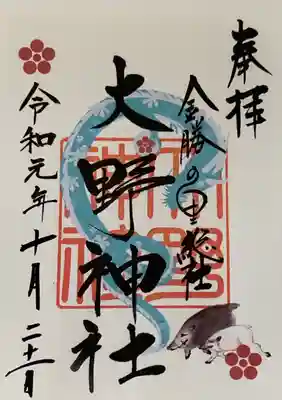 奉拝
金勝の里総社
大野神社
令和元年十月二十一日